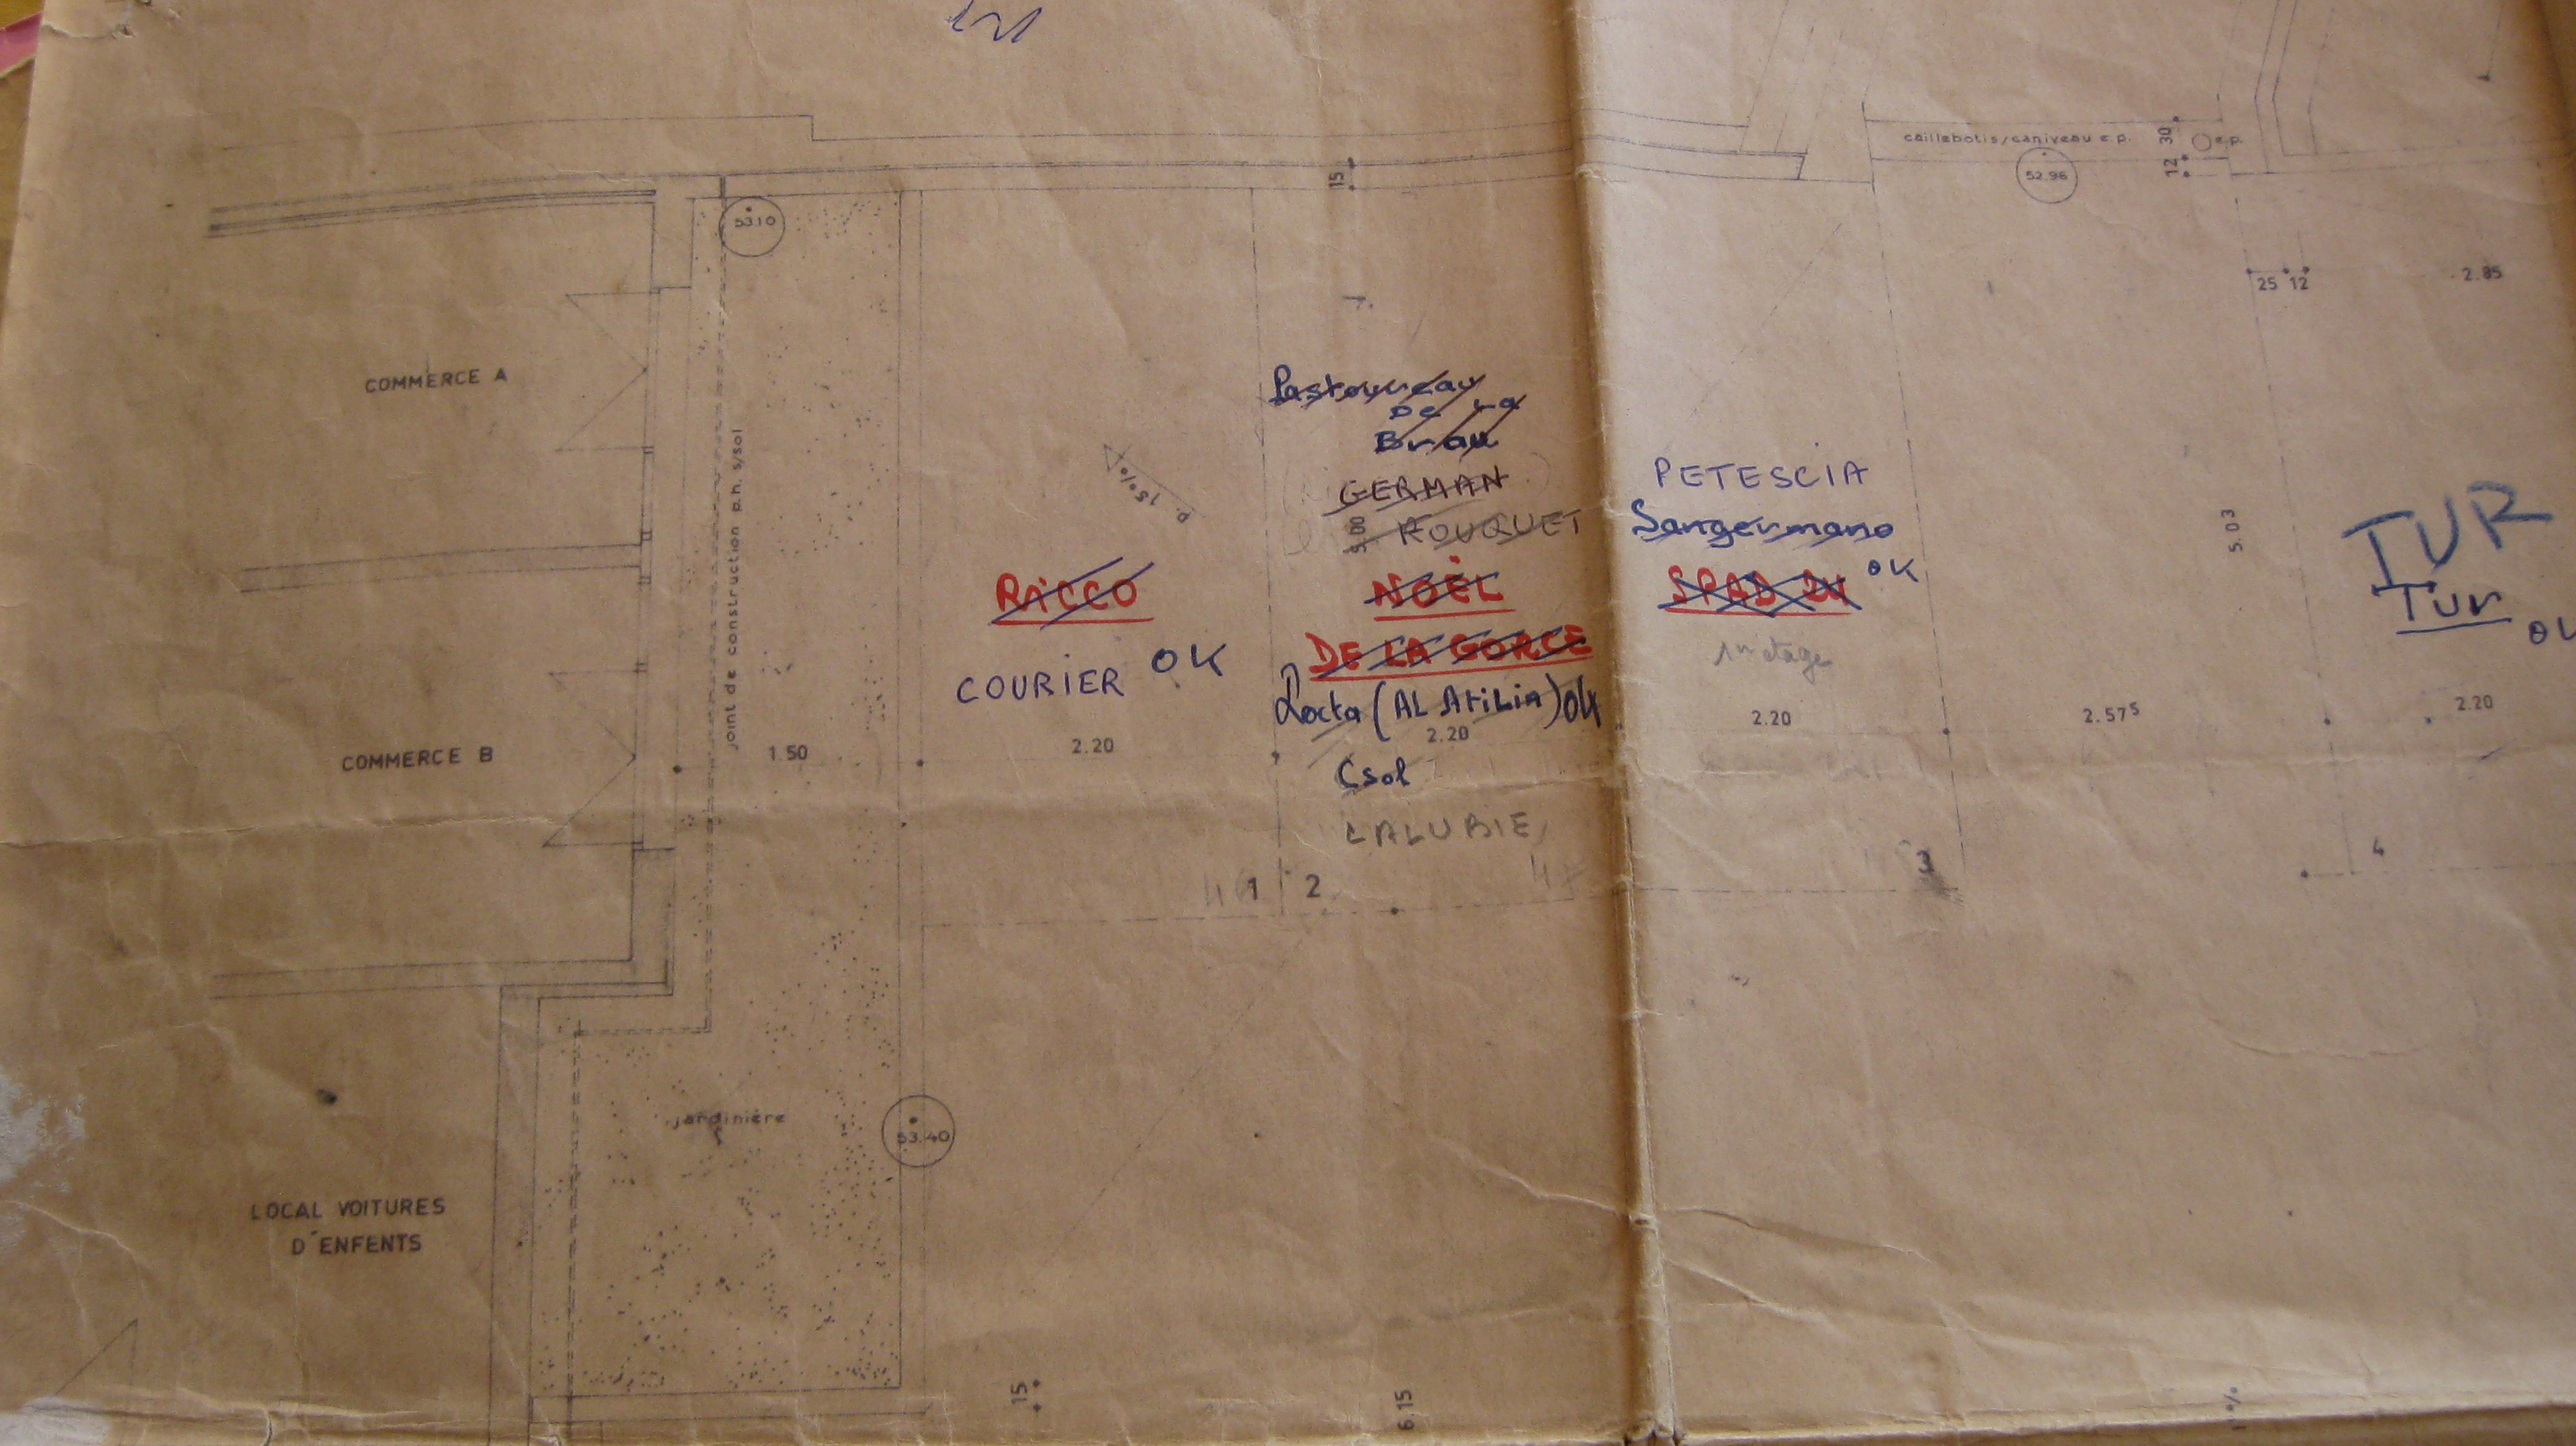 caillebotis/caniveau e.p.
e.p.
30
12
15
52.96
53.10
25 12
2.85
COMMERCE A
Pastoureau
De La
Brau
GERMAN
PETESCIA
p. 15%
5.00
ROUQUET
Sangermano
5.03
TUR
RICCO
NOËL
SPAD
OK
Tur
joint de construction p.h. s/sol
DE LA GORCE
1er etage
COURIER OK
Locta (AL Atilia) OK
COMMERCE B
1.50
2.20
2.20
2.20
2.57⁵
2.20
Csol
LALUBIE
1
2
3
4
jardinière
53.40
LOCAL VOITURES
D'ENFENTS
15
6.15